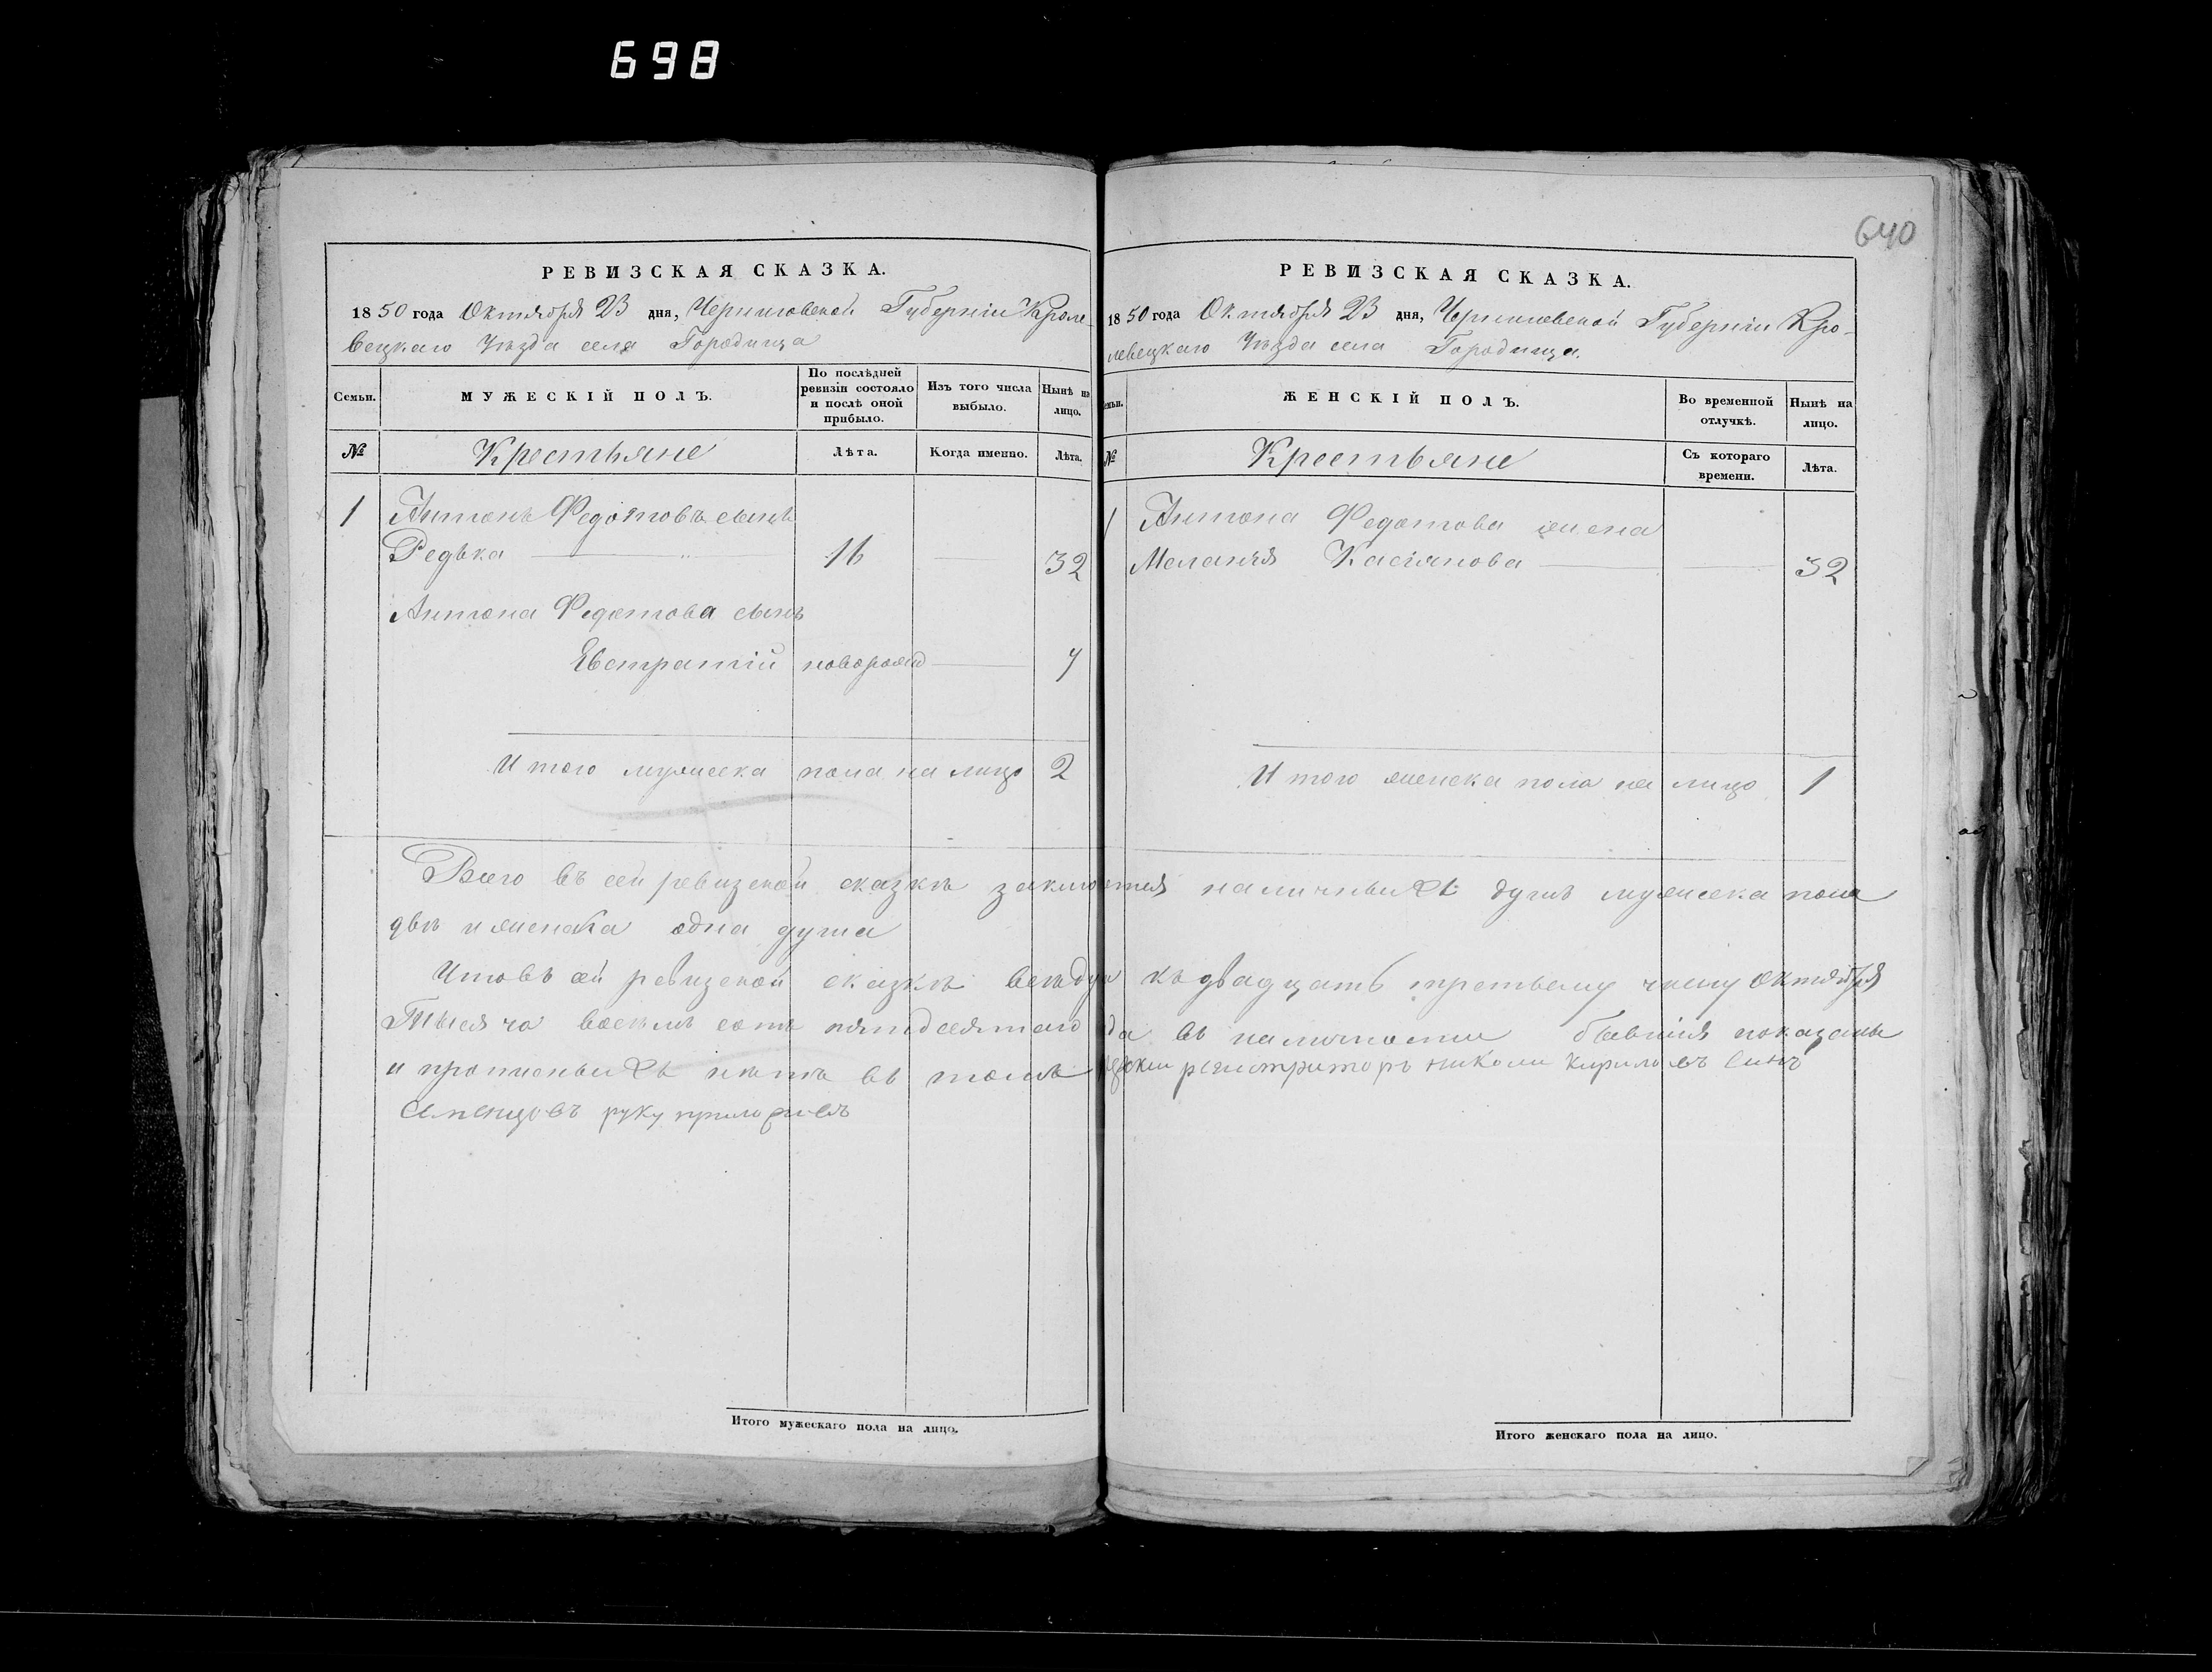 698
640
РЕВИЗСКАЯ СКАЗКА.
1850 года Октября 23 дня, Черниговской Губерніи Кроле-
вецкаго Уѣзда села Городища
Семьи.
МУЖЕСКІЙ ПОЛЪ.
По послѣдней ревизіи состояло и послѣ оной прибыло.
Изъ того числа выбыло.
Нынѣ на лицо.
№
Крестьяне
Лѣта.
Когда именно.
Лѣта.
1 Антонъ Федотовъ сынъ
Редька 16 32
Антона Федотова сынъ
Евстратій новорожд
Итого мужеска пола на лицо 2
РЕВИЗСКАЯ СКАЗКА.
1850 года Октября 23 дня, Черниговской Губерніи Кро-
левецкаго Уѣзда села Городища.
ЖЕНСКІЙ ПОЛЪ.
Во временной отлучкѣ.
Нынѣ на лицо.
№
Крестьяне
Съ котораго времени.
Лѣта.
1 Антона Федотова жена
Меланія Касіянова 32
Итого женска пола на лицо 1
Всего въ сей ревизской сказкѣ наличныхъ душъ мужеска пола
двѣ и женска одна душа
Что въ сей ревизской сказкѣ къ двадцать третьему числу Октября
Тысяча восемъ сотъ пятдесятаго въ наличности бывшія показаны
и прописныхъ нѣтъ въ томъ регистраторъ Николай Кириловъ синъ
руку приложилъ
Итого мужескаго пола на лицо.
Итого женскаго пола на лицо.